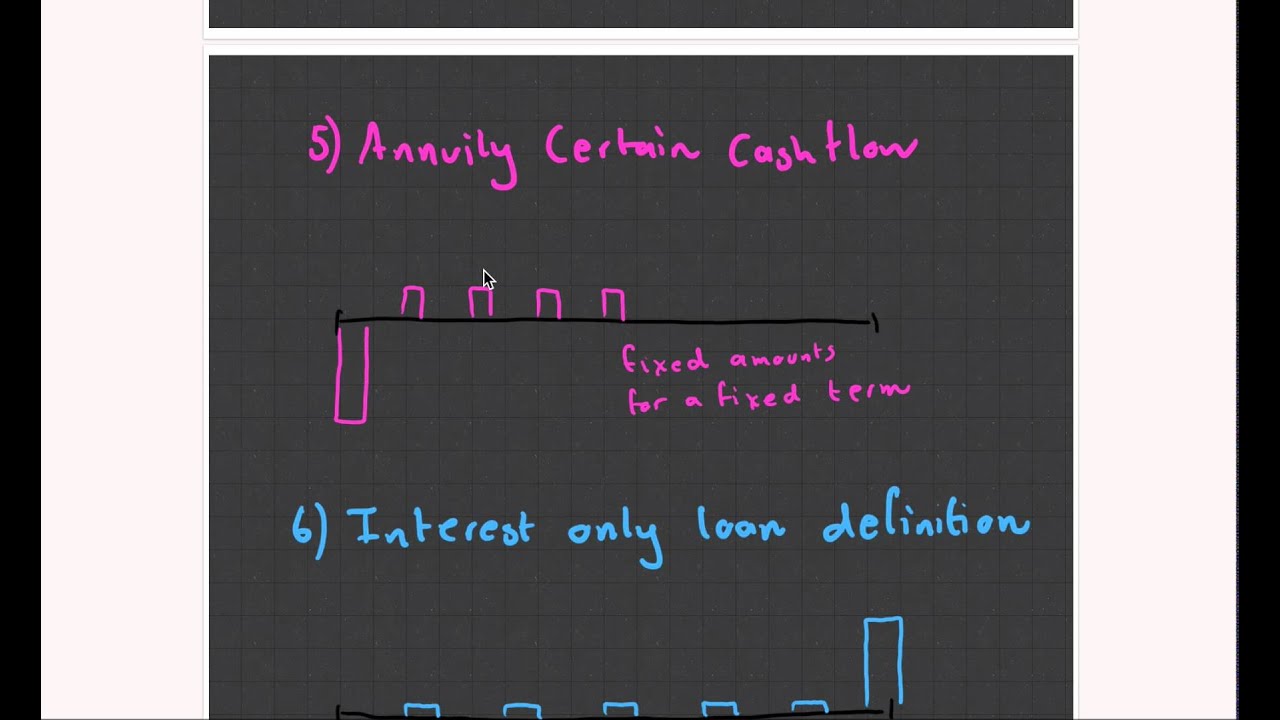 5) Annuity Certain Cashflow
fixed amounts
for a fixed term
6) Interest only loan definition